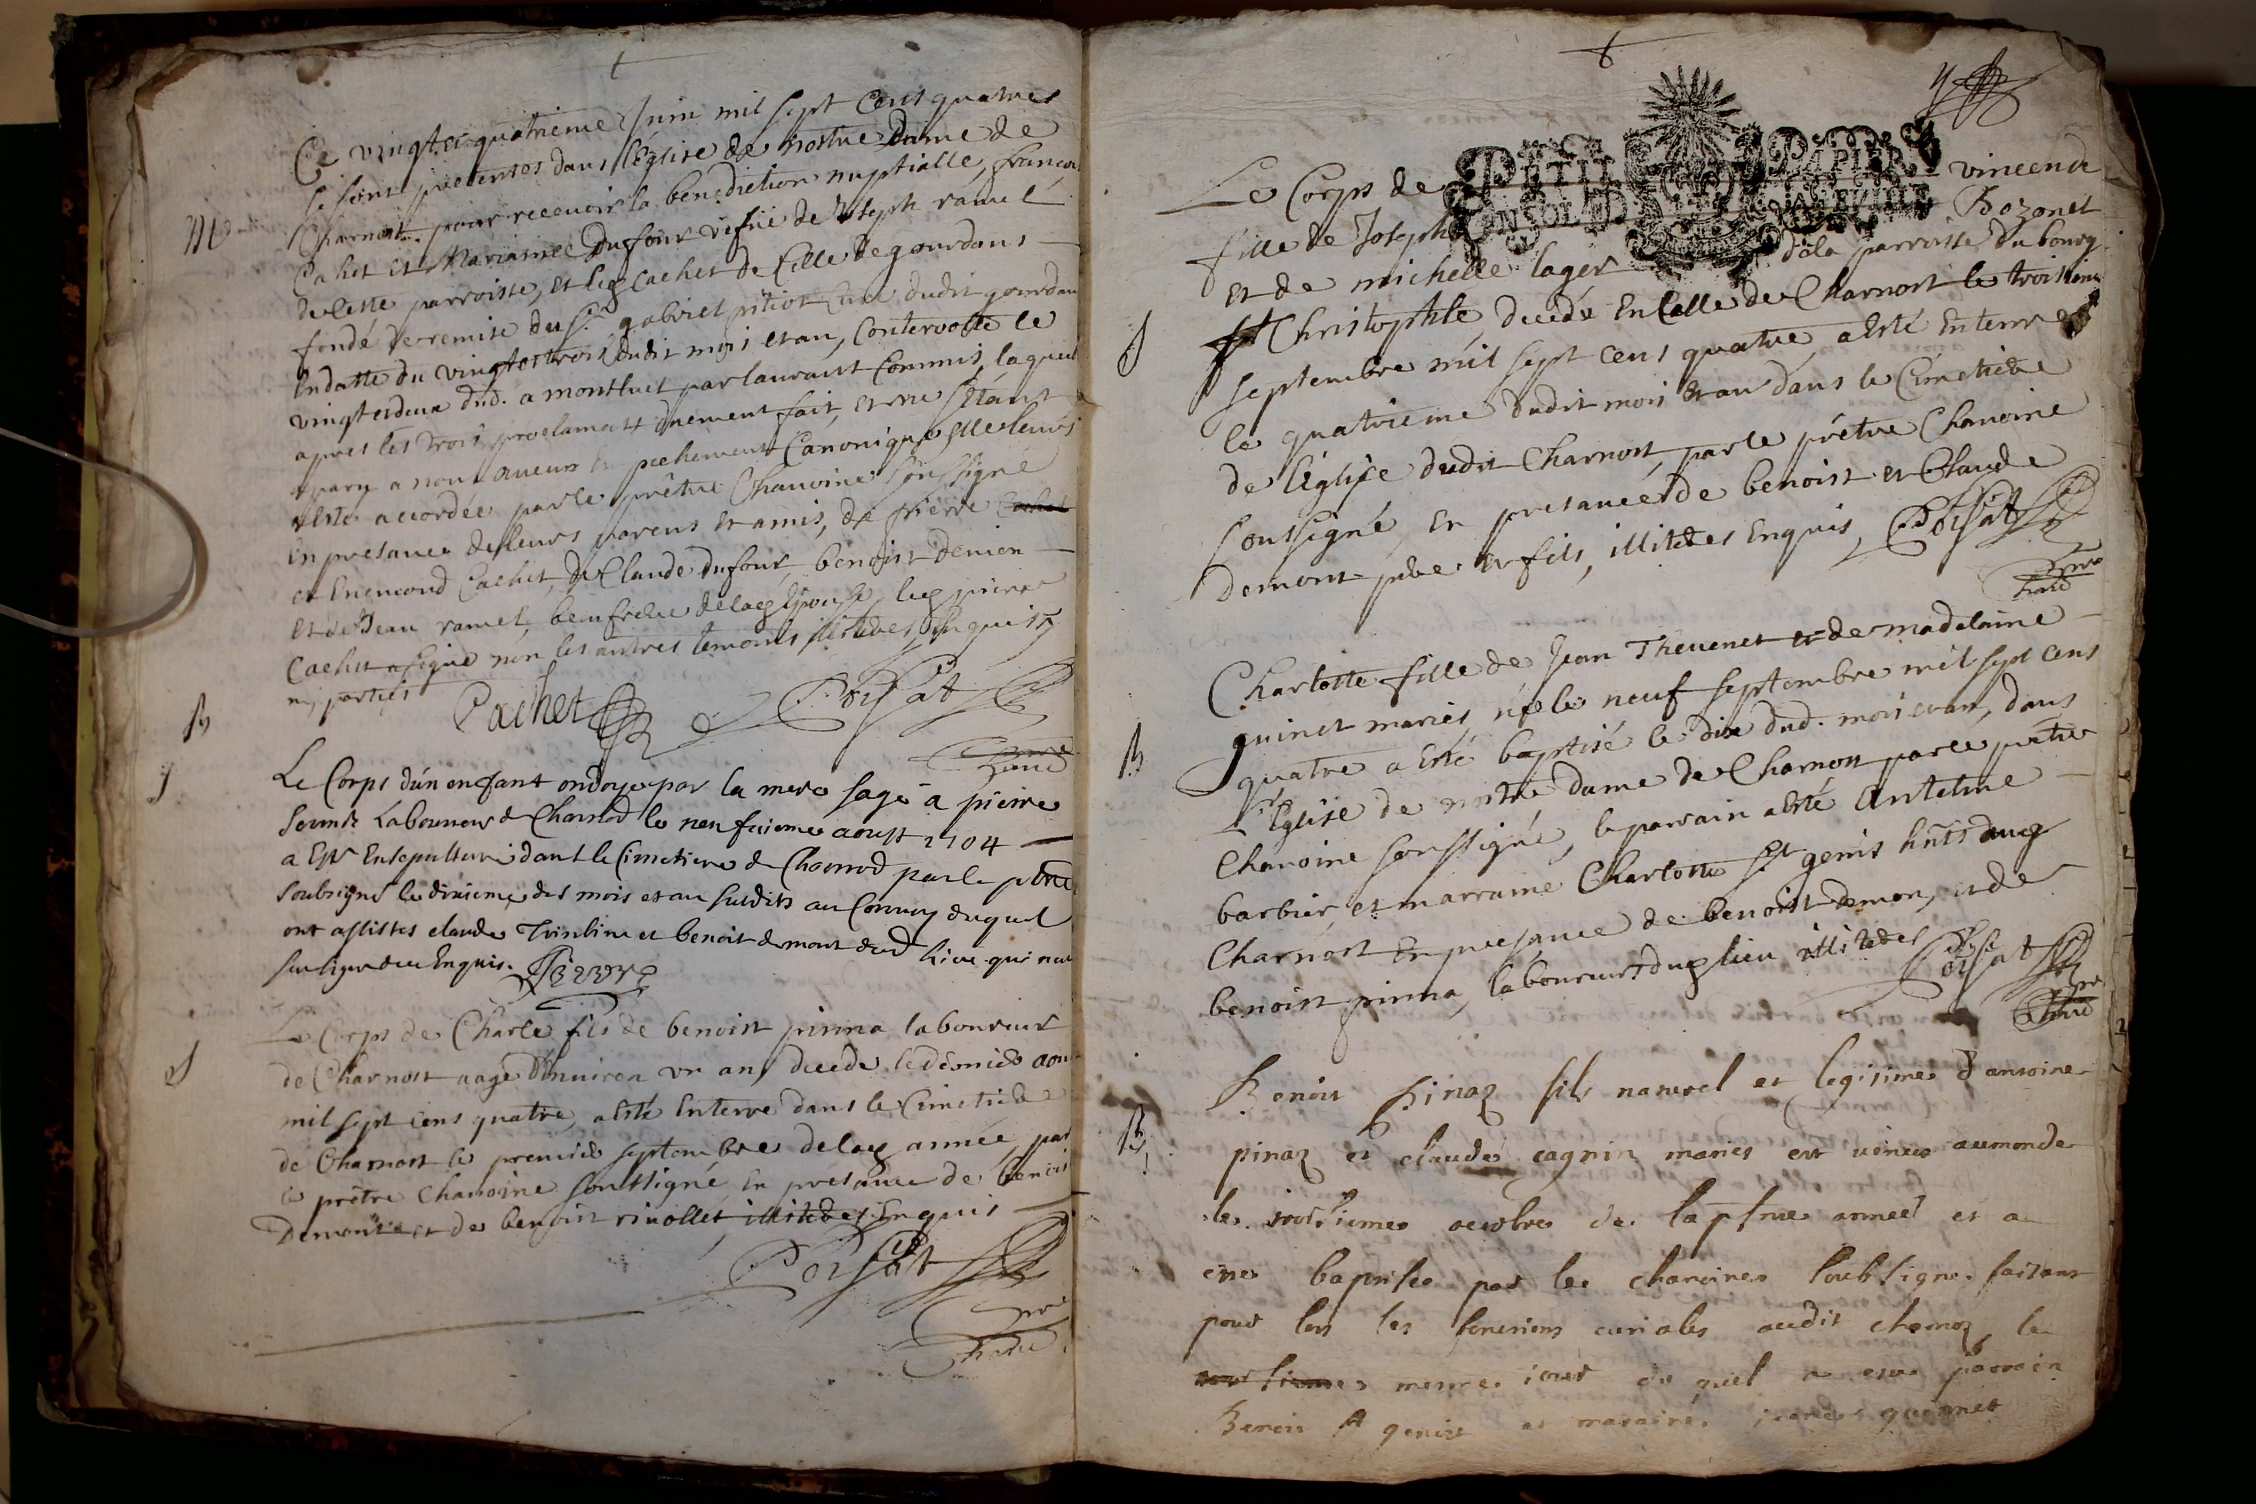 Ce vingt et quatrieme Juin mil sept cens quatres
se sont presentes dans l'Église de nostre Dame de
Charnost pour recevoir la benediction nuptialle, françois
M
Cachet et Mariamee Dufour vefue de Joseph ramel
de cette parroisse, et led Cachet de Celle de gourdans
fondé de remise du Sr gabriel pitiot Curé dudit gourdan
en datte du vingt et trois dudit mois et an, Contervolle le
vingt et deux dud. a montluet par laurant Commis, laquel
apres les trois proclamats duement fait, et ne s'étant
apary a nou aucun en pechement Canonique, elle leurs
a esté accordée par le prêtre Chanoine soussigné
en presance de leurs parens et amis, de pierre
et Enemond Cachet, de Claude dufour, benoist demon
et de Jean ramel, beaufrere de lad Epouse, led pierre
Cachet a signé non les autres temoins illitérés, Enquis
ny parties
Cachet Poissat
pre
Chane
B
S
Le Corps d'un enfant ondoye par la mere sage a pierre
Laboureur d Charnod le neufuieme aoust 1704
a Esté Ensepulturé dans le Cimetiere de Charnod par le pbre
soubsigne le dixieme des mois et an susdits au Convoy duquel
ont assistes claude et benoit demont dud lieu qui n'on
sceu signer de ce Enquis.
S
Le Corps de Charle fils de benoist pinna laboureur
de Charnost aagé d'Enuiron un an, decede le dernier aou
mil sept cens quatre, a esté Enterre dans le Cimetiere
de Charnost le premier septembre de lad année, par
le prêtre Chanoine soussigné en presance de benois
Demont et de benoist riuollet, illiteres Enquis
Poissat
pre
Chane
4
PETIT PAPIER
Le Corps de vincende
fille de Joseph Bozonet
et de michelle lager de la parroisse du bourg
S
St Christophle, decedé en Celle de Charnost le troisieme
septembre mil sept cens quatre, a esté Enterré
le quatrieme dudit mois et an dans le Cimetiere
de l'église dudit Charnost, par le prêtre Chanoine
soussigné, en presance de benoist et Claude
demont pere et fils, illiteres Enquis, Poissat
pre
Chane
Charlotte fille de Jean Theuenet et de madelaine
guinet mariés, née le neuf septembre mil sept cens
B
quatre a esté baptisé le dix dud. mois et an, dans
l'Église de nostre dame de Charnost par le prêtre
Chanoine soussigné, le parrain a esté Antelme
barbier, et marraine Charlotte St genis hnts dud
Charnost en presance de benoist demon, et de
benoist pinna, laboureurs dud lieu illiteres Poissat
pre
Chane
Benoit pinaz fils naturel et legitime d'antoine
B
pinaz et claudé cagnin mariés est uenu au monde
le troisieme octobre de la psnte année et a
este baptisé par le chanoine soubsigné faisant
pour lors les fonctions curiales audit charnoz le
mesme iour du quel a este parrain
Benoit St genist et maraine guinnet